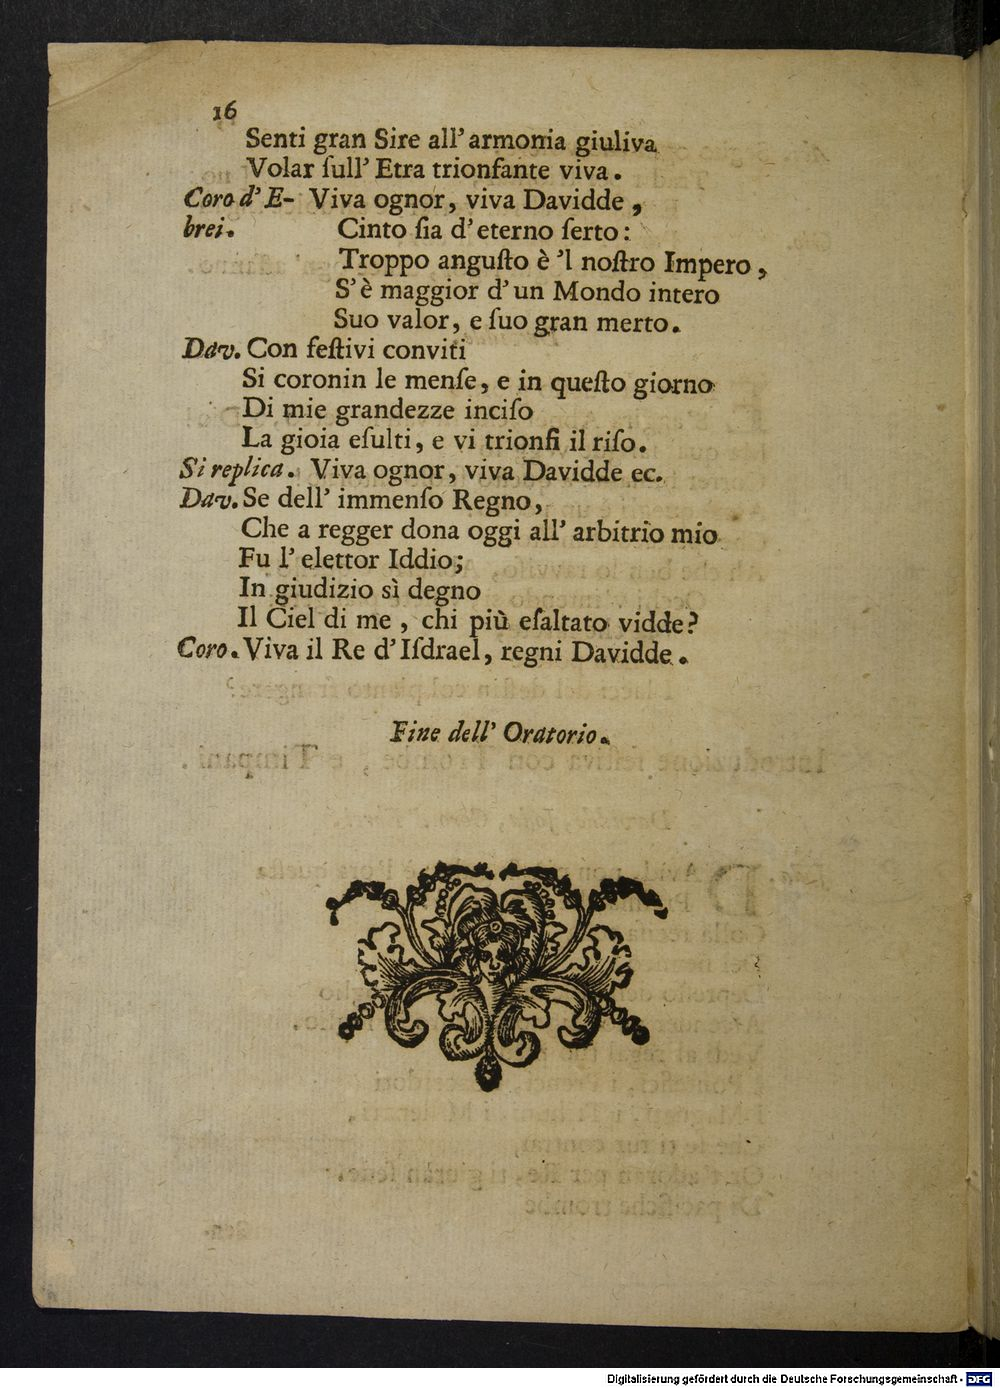 16
Senti gran Sire all' armonia giuliva
Volar ſull' Etra trionfante viva.
Coro d' E- Viva ognor, viva Davidde,
brei. Cinto ſia d' eterno ſerto:
Troppo anguſto è 'l noſtro Impero,
S' è maggior d' un Mondo intero
Suo valor, e ſuo gran merto.
Dav. Con feſtivi conviti
Si coronin le menſe, e in queſto giorno
Di mie grandezze inciſo
La gioia eſulti, e vi trionfi il riſo.
Si replica. Viva ognor, viva Davidde ec.
Dav. Se dell' immenſo Regno,
Che a regger dona oggi all' arbitrio mio
Fu l' elettor Iddio;
In giudizio sì degno
Il Ciel di me, chi più eſaltato vidde?
Coro. Viva il Re d' Iſdrael, regni Davidde.
Fine dell' Oratorio.
Digitalisierung gefördert durch die Deutsche Forschungsgemeinschaft - DFG